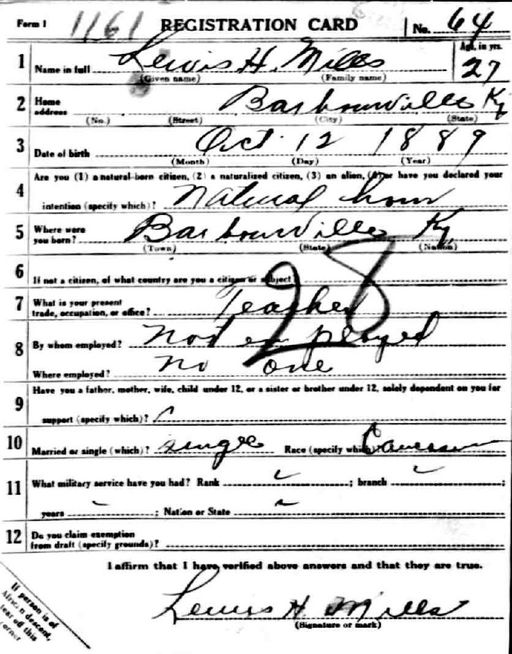 Form 1 1161 REGISTRATION CARD No. 64
1 Name in full Lewis H. Mills Age, in yrs. 27
(Given name) (Family name)
2 Home address Barbourville Ky
(No.) (Street) (City) (State)
3 Date of birth Oct 12 1889
(Month) (Day) (Year)
4 Are you (1) a natural-born citizen, (2) a naturalized citizen, (3) an alien, (4) or have you declared your
intention (specify which)? Natural born
5 Where were you born? Barbourville Ky
(Town) (State) (Nation)
6 If not a citizen, of what country are you a citizen or subject?
28
7 What is your present trade, occupation, or office? Teacher
8 By whom employed? Not employed
Where employed? No one
9 Have you a father, mother, wife, child under 12, or a sister or brother under 12, solely dependent on you for
support (specify which)?
10 Married or single (which)? single Race (specify which)? Caucasian
11 What military service have you had? Rank ; branch ;
years ; Nation or State
12 Do you claim exemption
from draft (specify grounds)?
I affirm that I have verified above answers and that they are true.
Lewis H Mills
(Signature or mark)
If person is of
African descent,
tear off this
corner